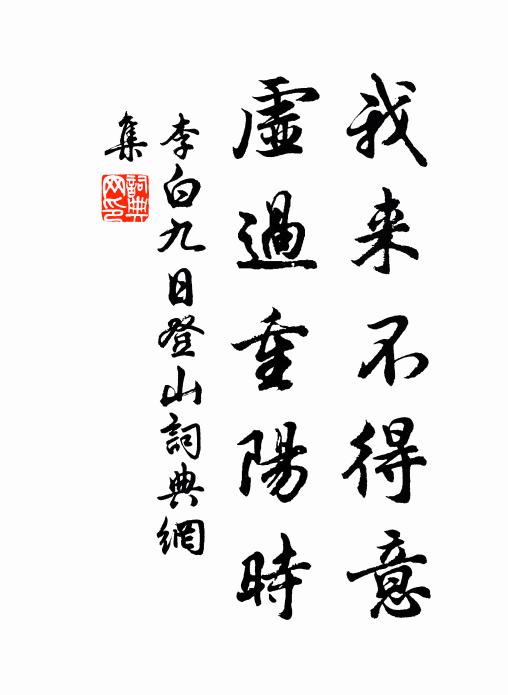 我来不得意
虛過重陽時
李白九日登山詞典網
集
詞典網印